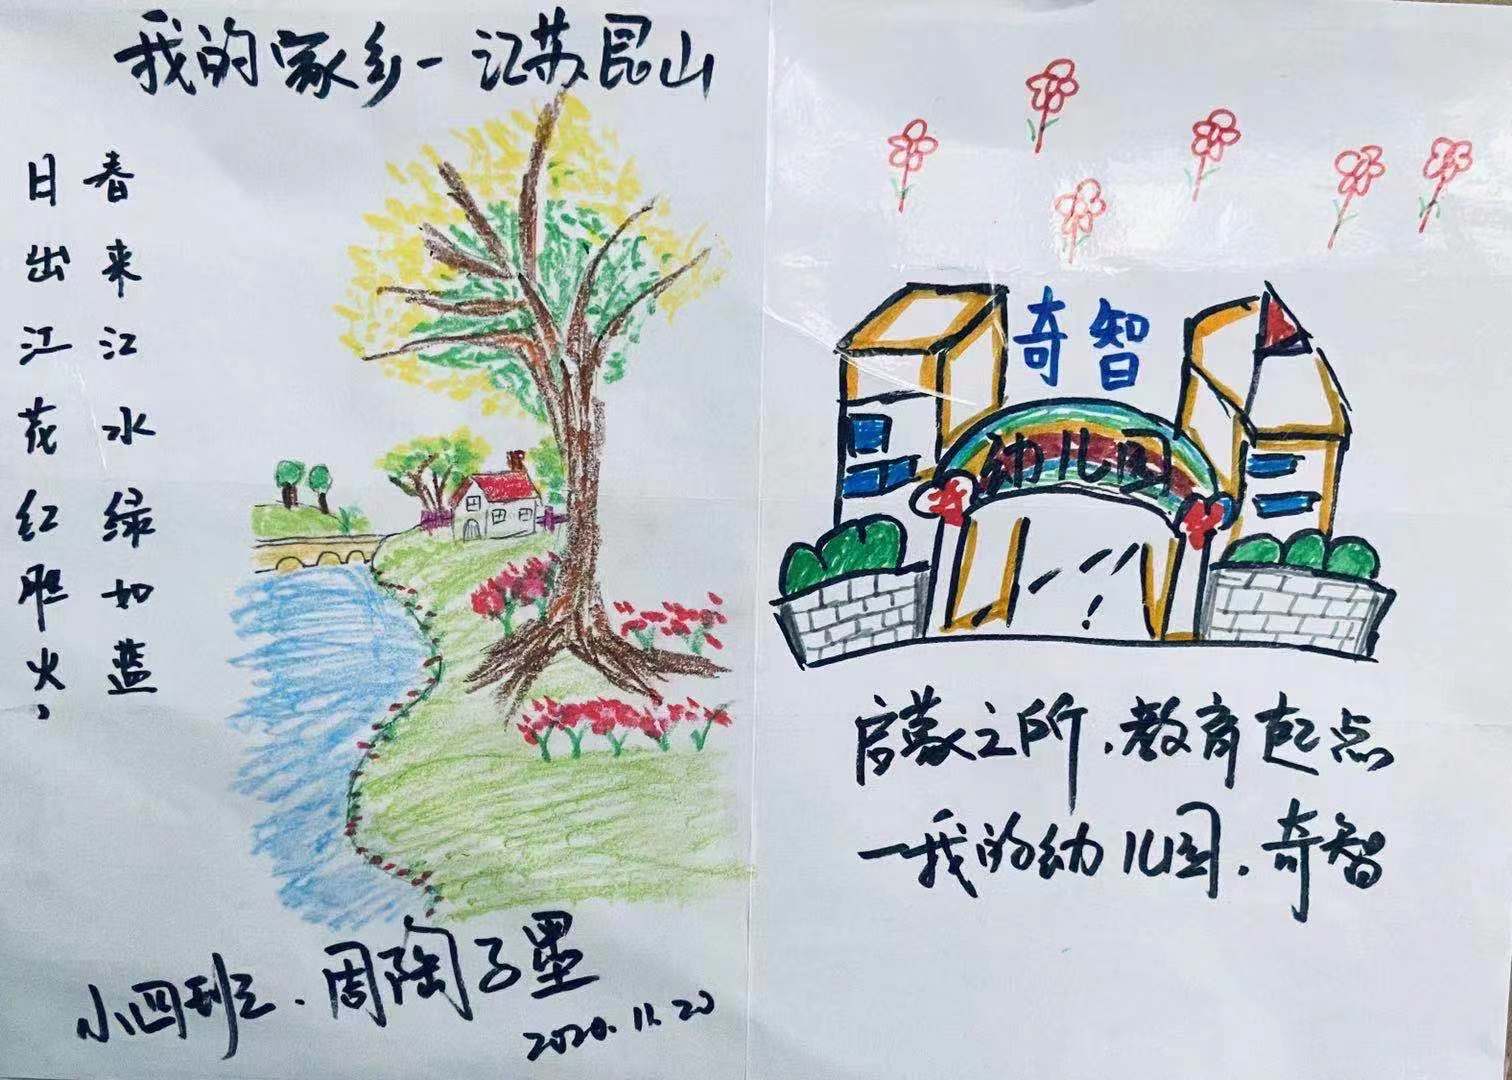 我的家乡—江苏昆山
日出江花红胜火,
春来江水绿如蓝
小四班.周陶子墨
2020.11.20
奇智
幼儿园
启蒙之所,教育起点
—我的幼儿园.奇智